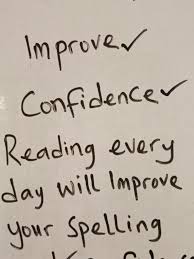 Improve✓
Confidence✓
Reading every
day will Improve
your Spelling